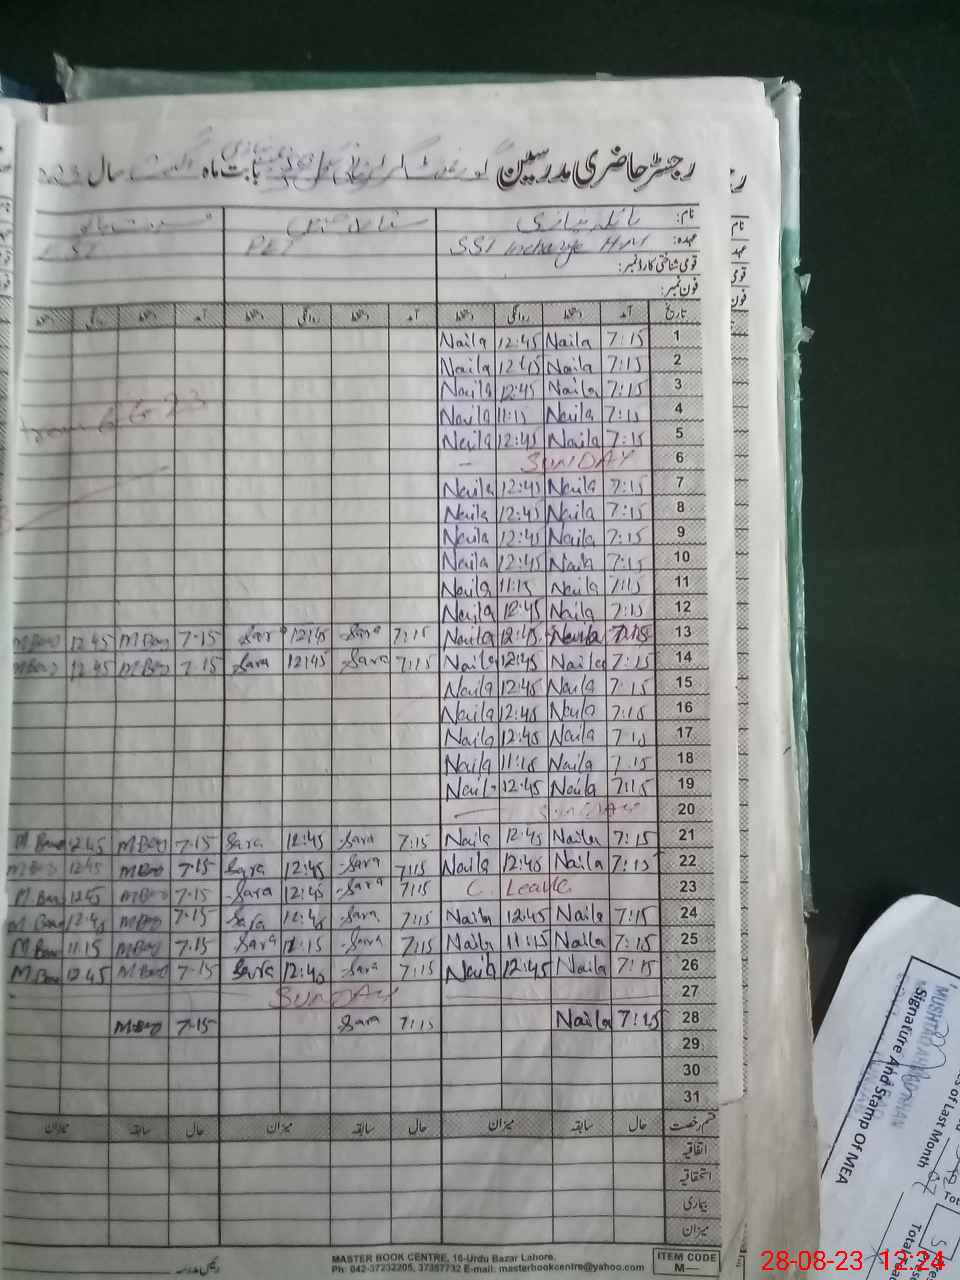 رجسٹر حاضری مدرسین بابت ماہ سال
نام:
عہدہ: SST Incharge HM PET EST
قومی شناختی کارڈ نمبر:
فون نمبر:
تاریخ آمد دستخط روانگی دستخط آمد دستخط روانگی دستخط آمد دستخط روانگی دستخط
1 7:15 Naila 12:45 Naila
2 7:15 Naila 12:45 Naila
3 7:15 Naila 12:45 Naila
4 7:15 Naila 11:15 Naila
5 7:15 Naila 12:45 Naila
6 SUNDAY
7 7:15 Naila 12:45 Naila
8 7:15 Naila 12:45 Naila
9 7:15 Naila 12:45 Naila
10 7:15 Naila 12:45 Naila
11 7:15 Naila 11:15 Naila
12 7:15 Naila 12:45 Naila
13 7:15 Naila 12:45 Naila 7:15 Sara 12:45 Sara 7.15 M Bano 12.45 M Bano
14 7:15 Naila 12:45 Naila 7:15 Sara 12:45 Sara 7.15 M Bano 12.45 M Bano
15 7:15 Naila 12:45 Naila
16 7:15 Naila 12:45 Naila
17 7:15 Naila 12:45 Naila
18 7:15 Naila 11:15 Naila
19 7:15 Naila 12:45 Naila
20 SUNDAY
21 7:15 Naila 12:45 Naila 7:15 Sara 12:45 Sara 7.15 M Bano 12.45 M Bano
22 7:15 Naila 12:45 Naila 7:15 Sara 12:45 Sara 7.15 M Bano 12.45 M Bano
23 C. Leave 7:15 Sara 12:45 Sara 7.15 M Bano 12.45 M Bano
24 7:15 Naila 12:45 Naila 7:15 Sara 12:45 Sara 7.15 M Bano 12.45 M Bano
25 7:15 Naila 11:15 Naila 7:15 Sara 11:15 Sara 7.15 M Bano 11.15 M Bano
26 7:15 Naila 12:45 Naila 7:15 Sara 12:45 Sara 7.15 M Bano 12.45 M Bano
27 SUNDAY
28 7:15 Naila 7:15 Sara 7.15 M Bano
29
30
31
قسم رخصت حال سابقہ میزان حال سابقہ میزان حال سابقہ میزان
اتفاقیہ
استحقاقیہ
بیماری
میزان
MASTER BOOK CENTRE, 16-Urdu Bazar Lahore.
Ph: 042-37232205, 37357732 E-mail: masterbookcentre@yahoo.com
ITEM CODE
M—
رئیس مدرسہ
Signature And Stamp Of MEA
of Last Month 07
28-08-23 12:24